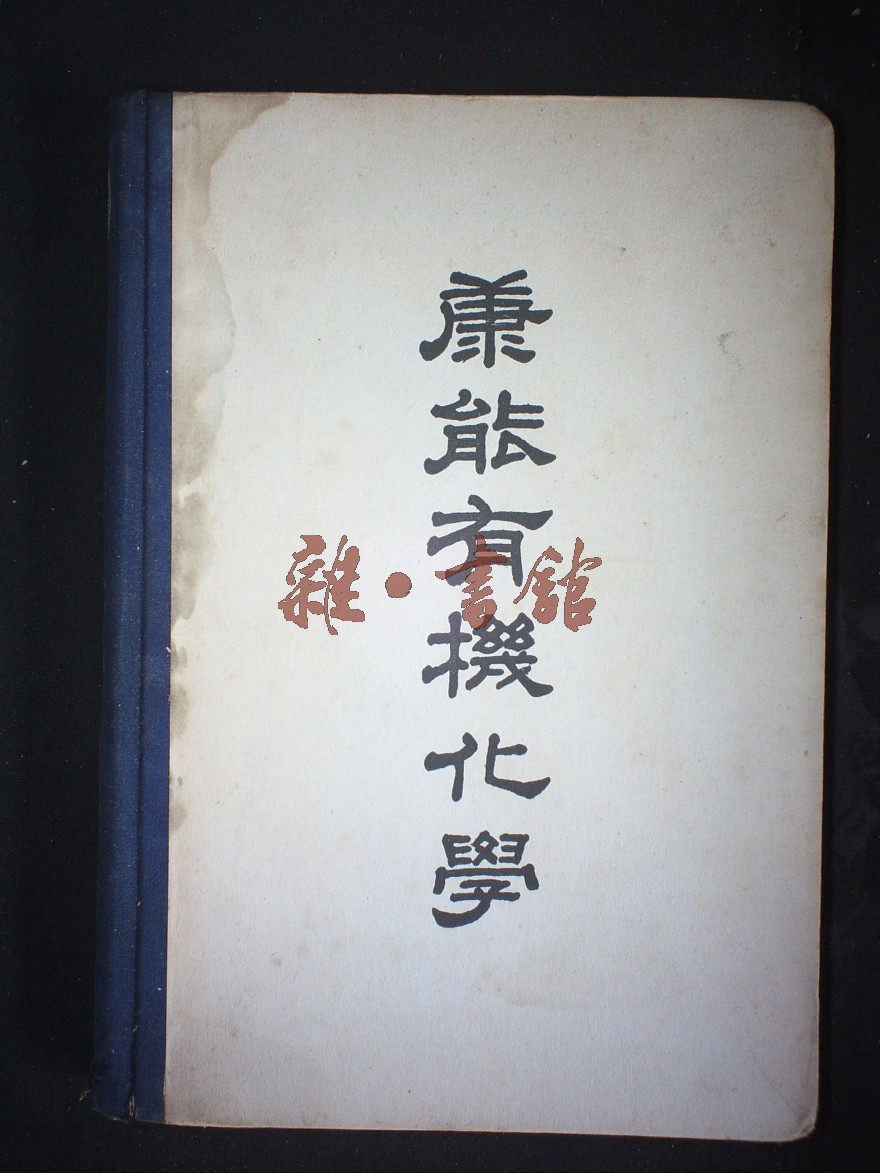 康能有機化學
雜·書館